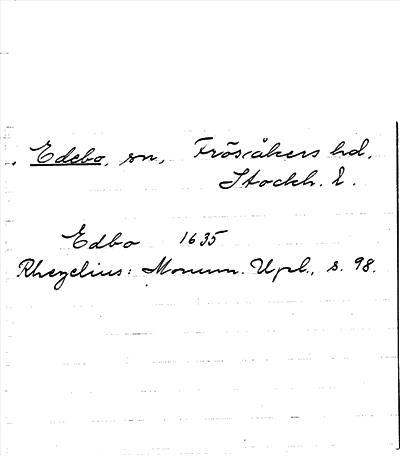 Edebo, sn, Frösåkers hd.
Stockh. l.
Edbo 1635
Rhezelius: Monum. Upl., s. 98.